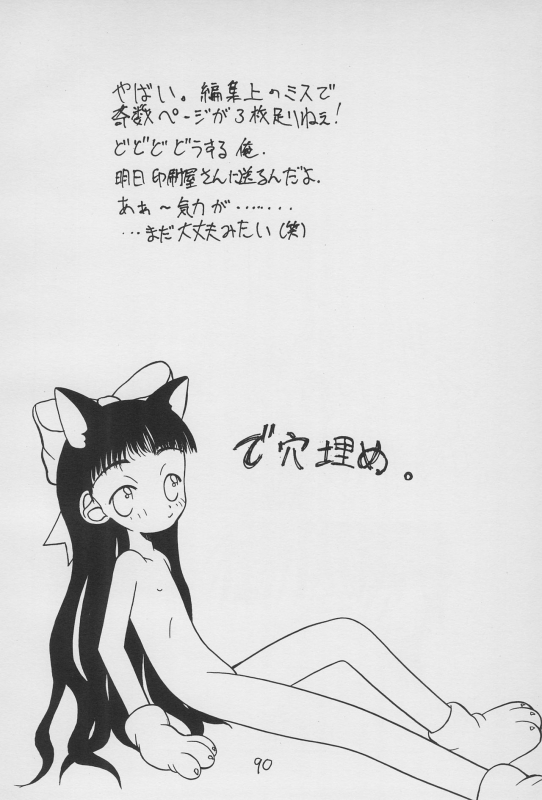 やばい。編集上のミスで
奇数ページが3枚足りねぇ!
どどどどうする俺.
明日印刷屋さんに送るんだよ.
あぁ〜気力が‥‥‥‥
…まだ大丈夫みたい(笑)
で穴埋め。
90